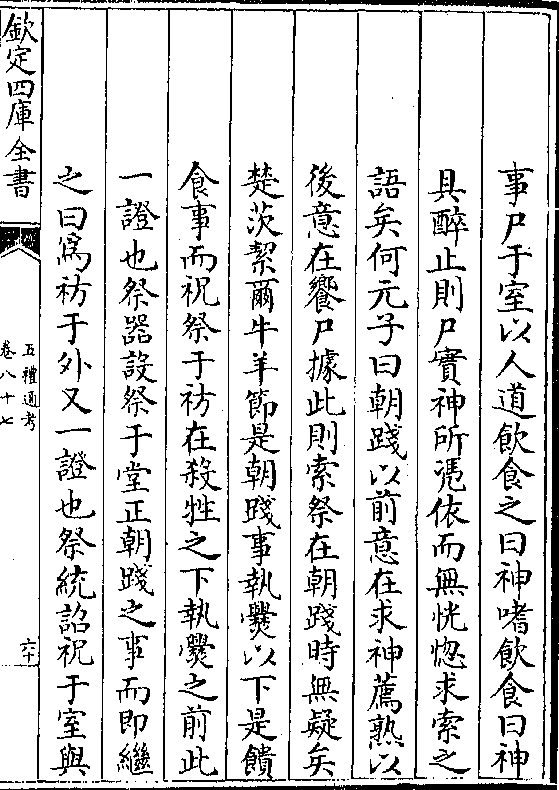 事尸于室以人道飲食之曰神嗜飲食曰神
具醉止則尸實神所憑依而無恍惚求索之
語矣何元子曰朝踐以前意在求神薦熟以
後意在饗尸據此則索祭在朝踐時無疑矣
楚茨絜爾牛羊節是朝踐事執爨以下是饋
食事而祝祭于祊在殺牲之下執爨之前此
一證也祭器設祭于堂正朝踐之事而即繼
之曰為祊于外又一證也祭統詔祝于室與
欽定四庫全書
五禮通考
卷八十七
六十